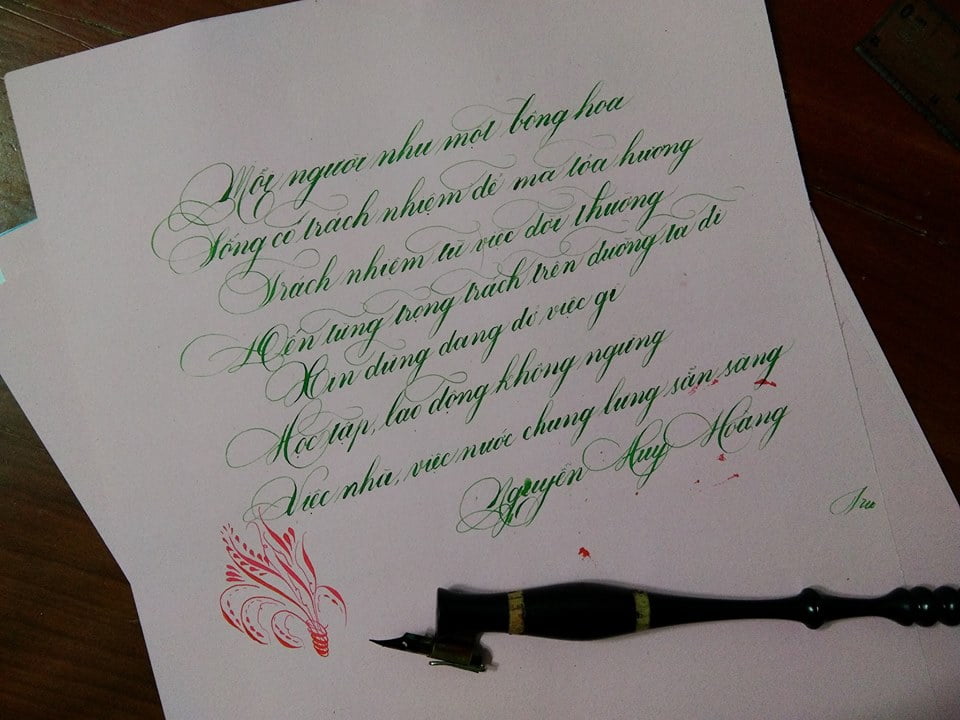 Mỗi người như một bông hoa
Sống có trách nhiệm để mà tỏa hương
Trách nhiệm từ việc đời thường
Đến từng trọng trách trên đường ta đi
Xin đừng dang dở việc gì
Học tập, lao động không ngừng
Việc nhà, việc nước chung lưng sẵn sàng
Nguyễn Huy Hoàng